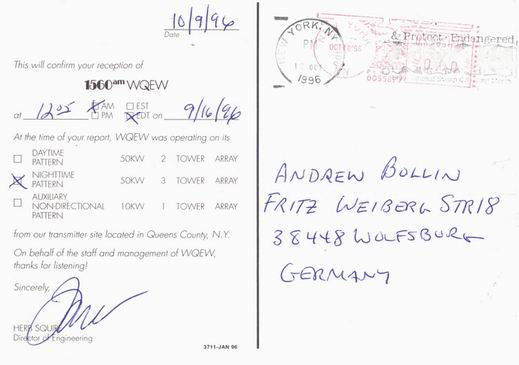 10/9/96
Date
This will confirm your reception of
1560am WQEW
at 1205 AM EST
PM EDT on 9/16/96
At the time of your report, WQEW was operating on its
DAYTIME
PATTERN 50KW 2 TOWER ARRAY
NIGHTTIME
PATTERN 50KW 3 TOWER ARRAY
AUXILIARY
NON-DIRECTIONAL 10KW 1 TOWER ARRAY
PATTERN
from our transmitter site located in Queens County, N.Y.
On behalf of the staff and management of WQEW,
thanks for listening!
Sincerely,
HERB SQUIRE
Director of Engineering
3711-JAN 96
NEW YORK, NY
1996
& Protect Endangered
OCT 10 '96
ANDREW BOLLIN
FRITZ WEIBERG STR 18
38448 WOLFSBURG
GERMANY